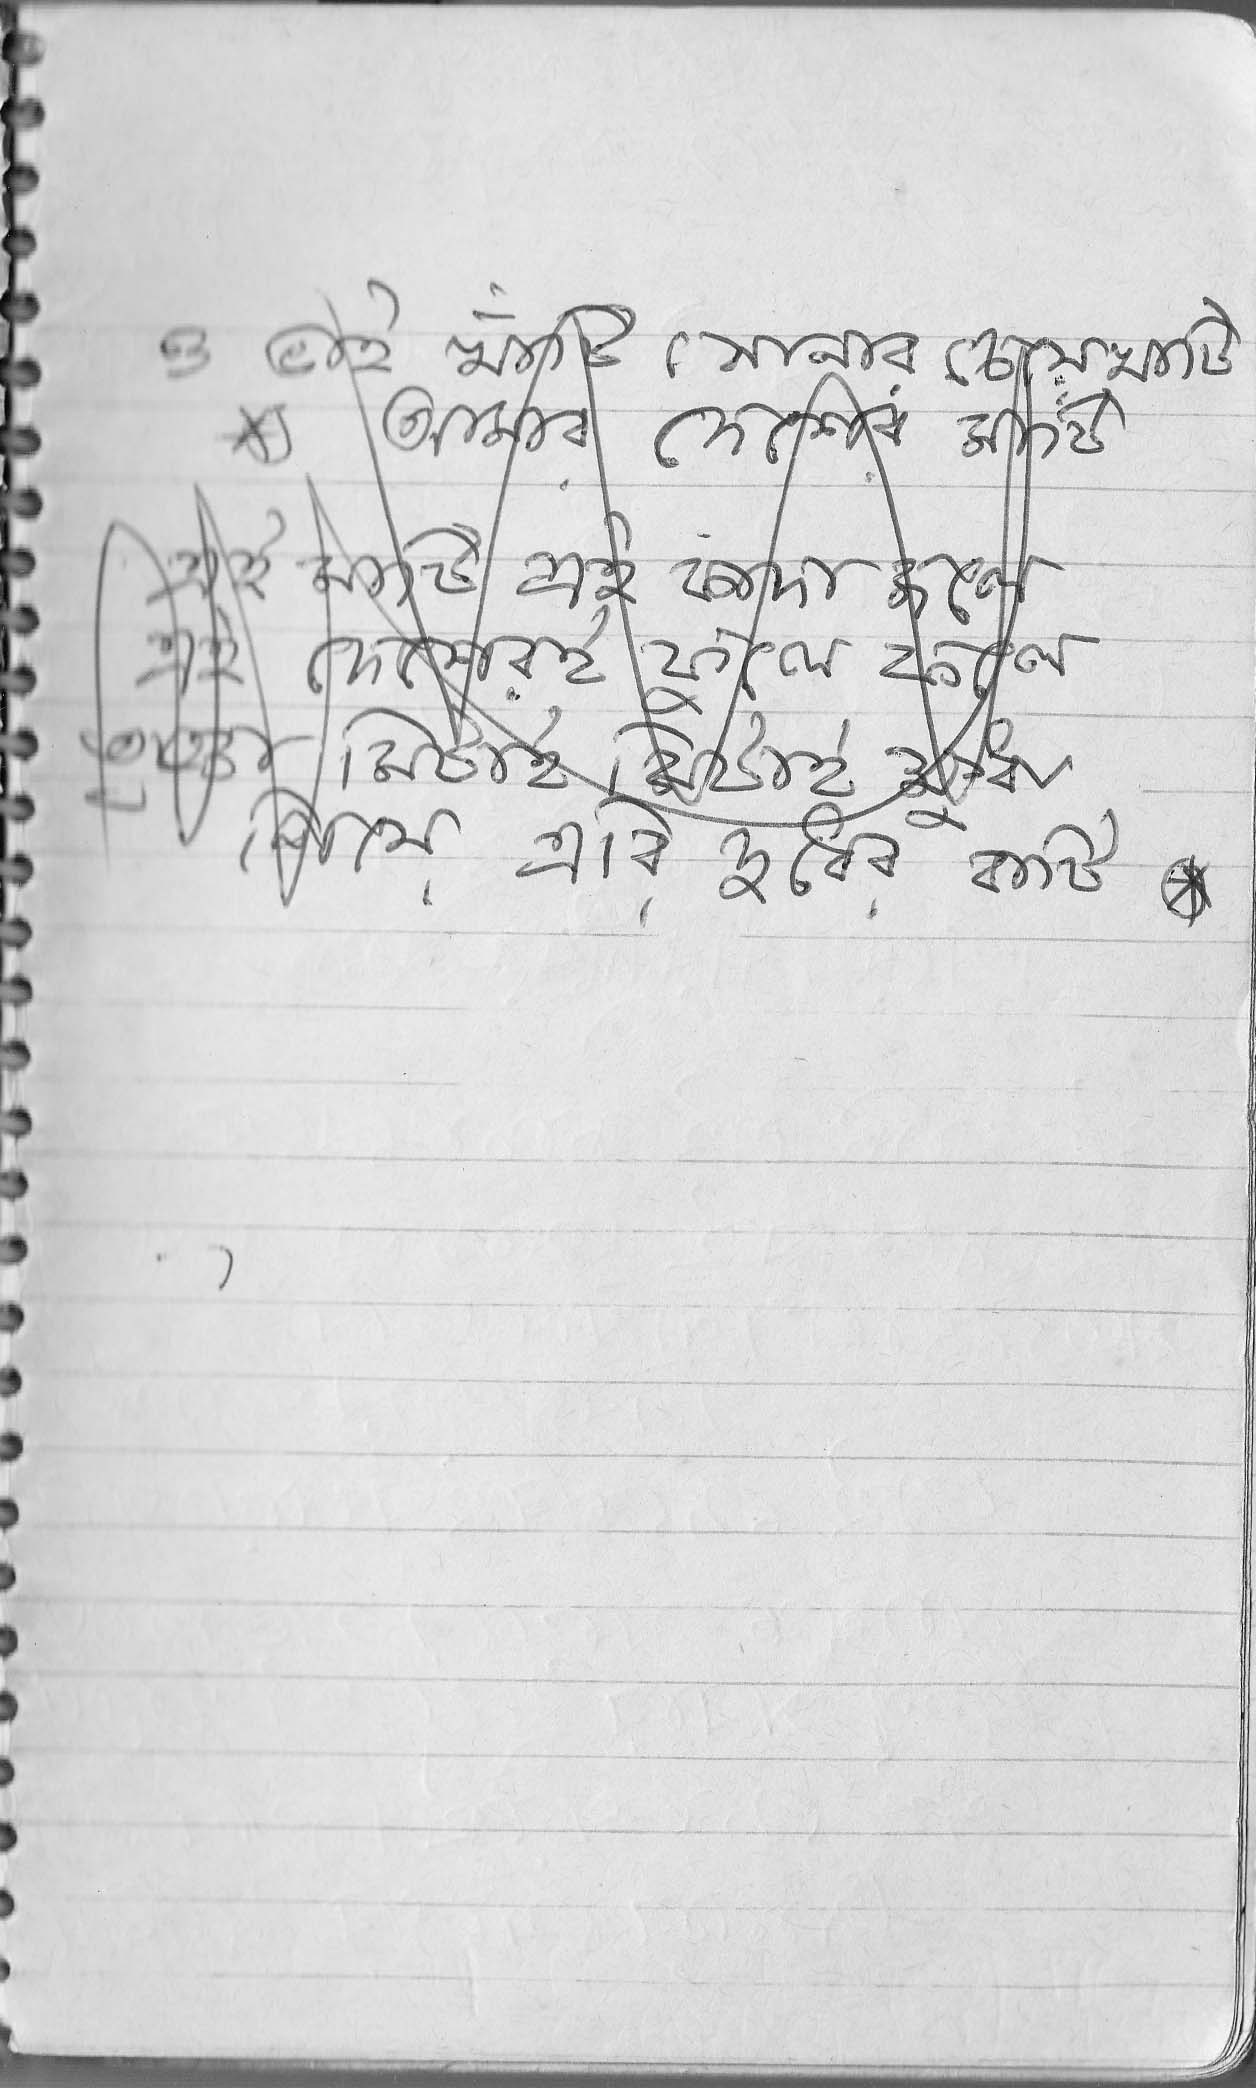 ও ভাই খাঁটি সোনার চেয়ে খাটি
আমার দেশের মাটি
এই মাটি এই কাদা জলে
এই দেশেরই ফুলে ফলে
তৃষ্ণা মিটাই মিটাই ক্ষুধা
পিয়ে এরি দুধের বাটি